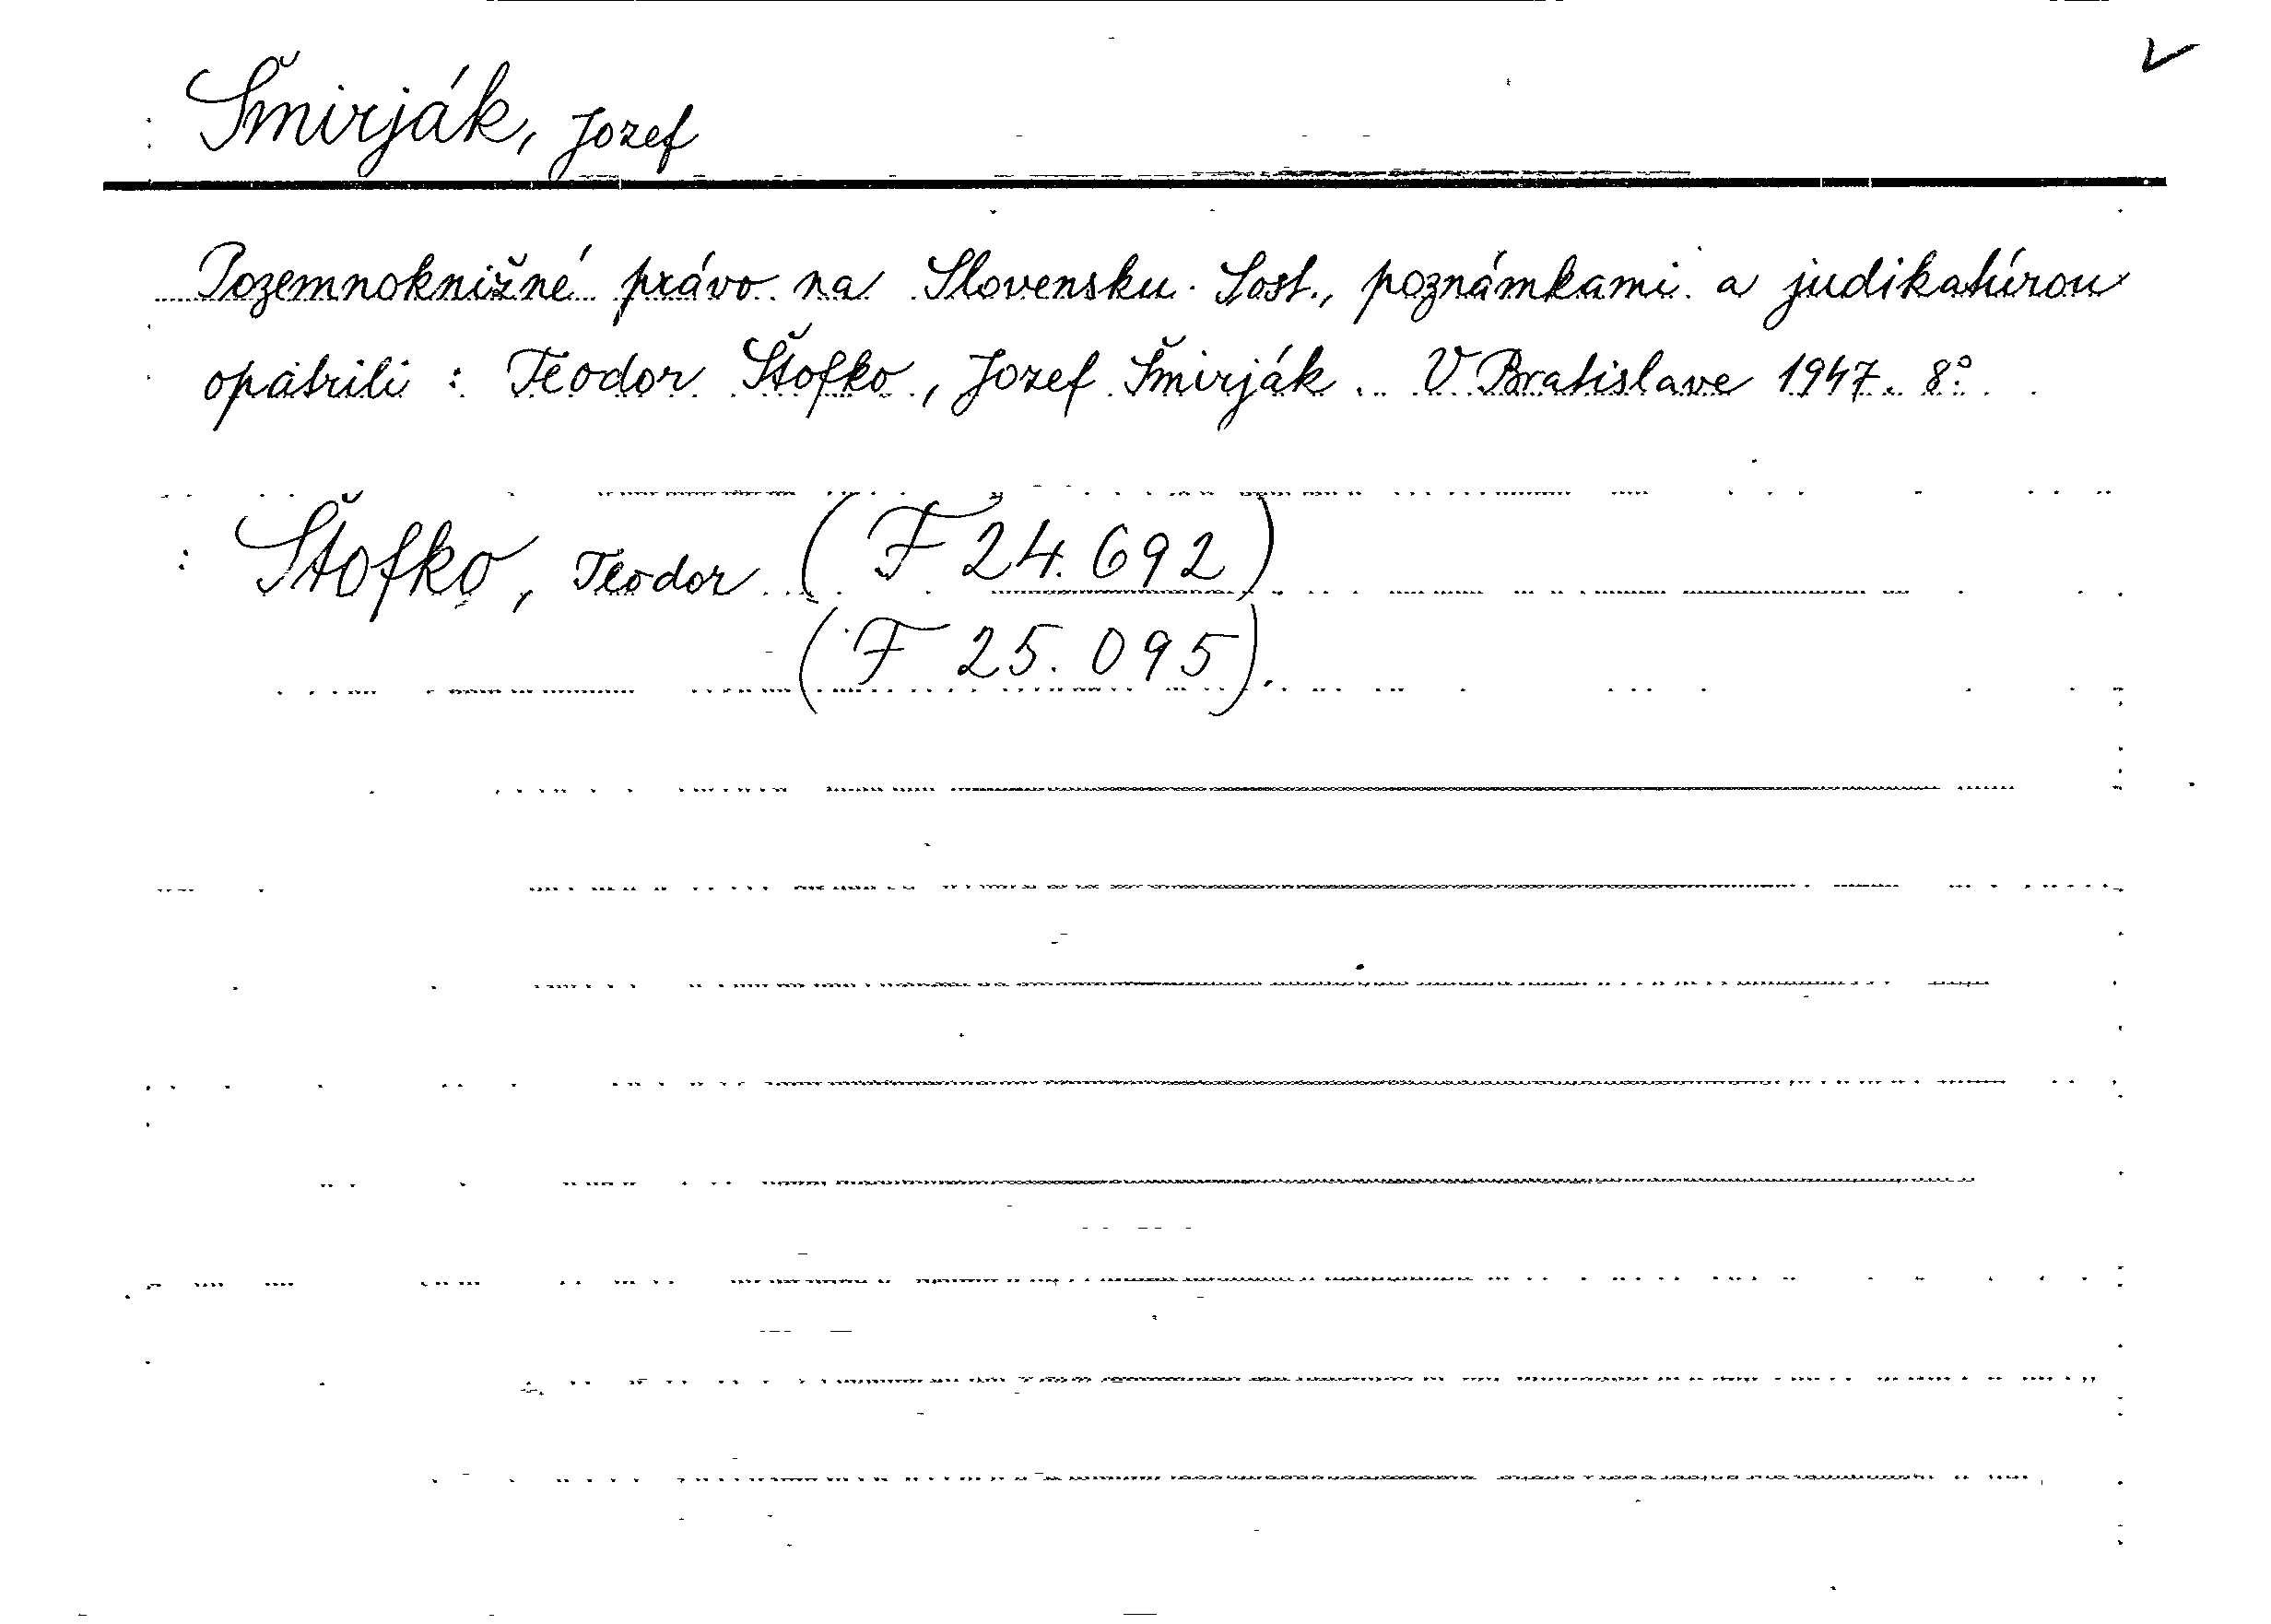 Šmirják, Jozef
Pozemnoknižné právo na Slovensku. Sost., poznámkami a judikatúrou
opatrili : Teodor Štofko, Jozef Šmirják. V Bratislave 1947. 8°.
Štofko, Teodor (F 24.692)
(F 25.095).